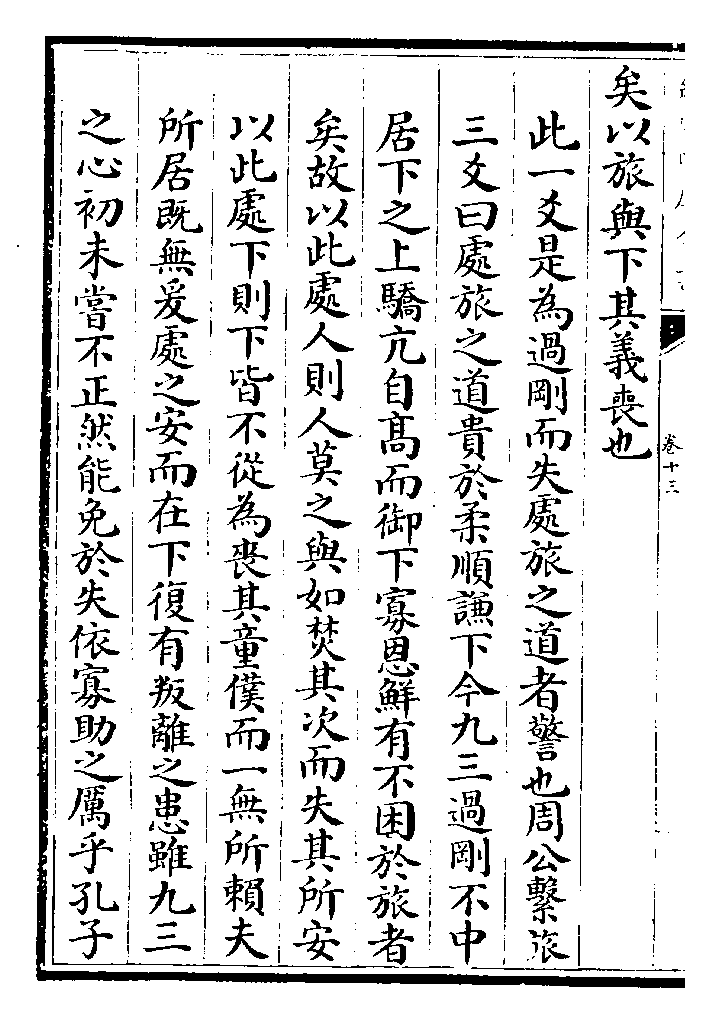 卷十三
矣以旅與下其義喪也
此一爻是為過剛而失處旅之道者警也周公繫旅
三爻曰處旅之道貴於柔順謙下今九三過剛不中
居下之上驕亢自髙而御下寡恩鮮有不困於旅者
矣故以此處人則人莫之與如焚其次而失其所安
以此處下則下皆不從為喪其童僕而一無所賴夫
所居既無爰處之安而在下復有叛離之患雖九三
之心初未嘗不正然能免於失依寡助之厲乎孔子